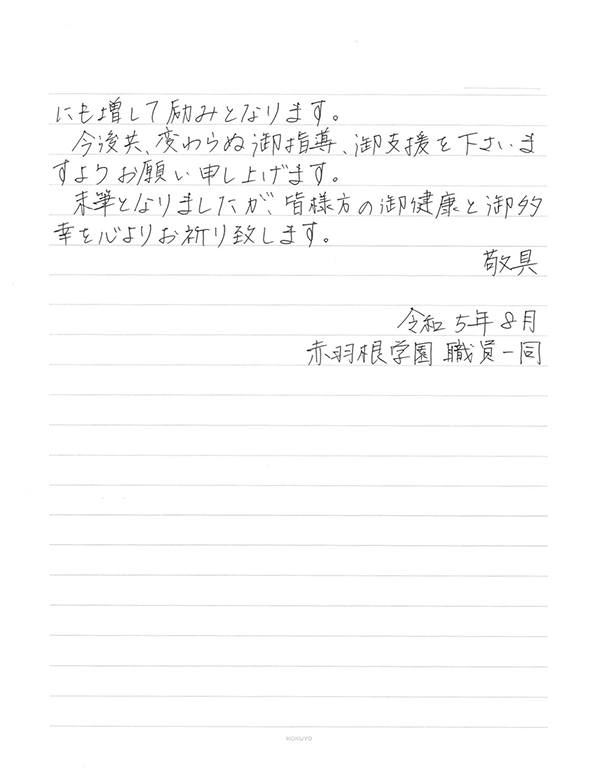 にも増して励みとなります。
今後共、変わらぬ御指導、御支援を下さいま
すようお願い申し上げます。
末筆となりましたが、皆様方の御健康と御多
幸を心よりお祈り致します。
敬具
令和5年8月
赤羽根学園 職員一同
KOKUYO